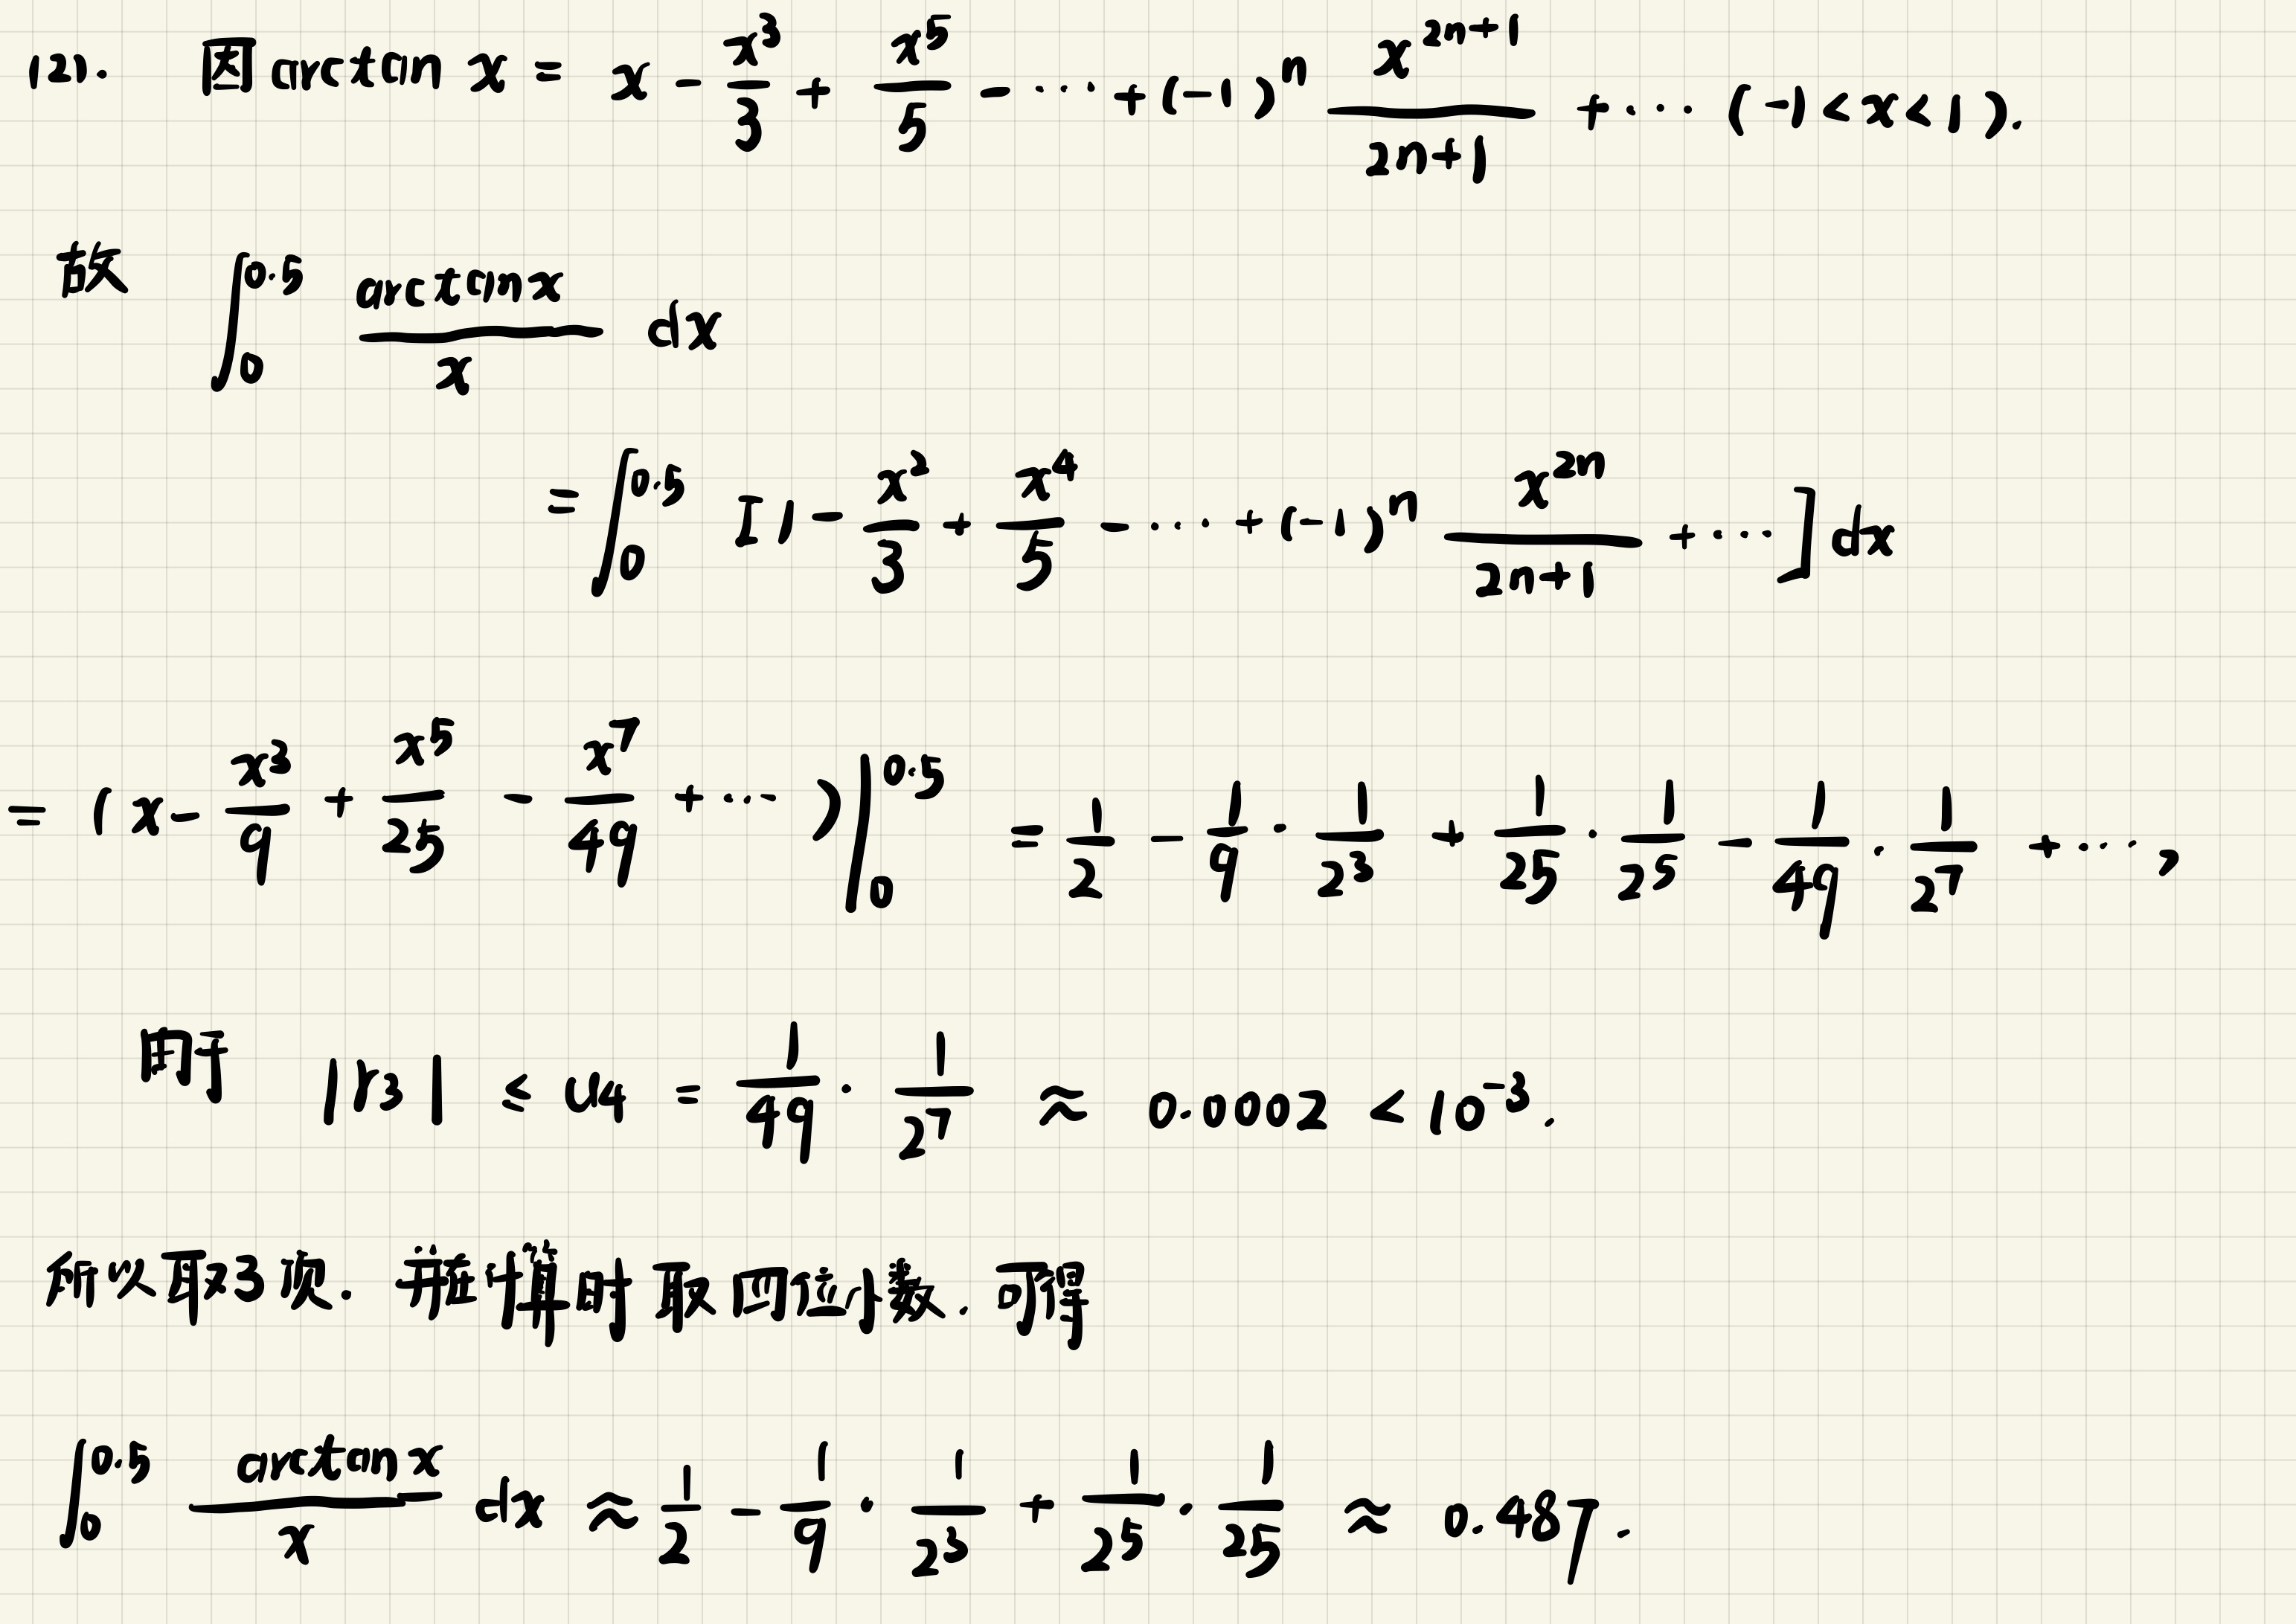 (2). 因 arctan x = x - \frac{x^3}{3} + \frac{x^5}{5} - \cdots + (-1)^n \frac{x^{2n+1}}{2n+1} + \cdots (-1<x<1).
故 \int_0^{0.5} \frac{arctan x}{x} dx
= \int_0^{0.5} [1 - \frac{x^2}{3} + \frac{x^4}{5} - \cdots + (-1)^n \frac{x^{2n}}{2n+1} + \cdots] dx
= (x - \frac{x^3}{9} + \frac{x^5}{25} - \frac{x^7}{49} + \cdots)|_0^{0.5} = \frac{1}{2} - \frac{1}{9} · \frac{1}{2^3} + \frac{1}{25} · \frac{1}{2^5} - \frac{1}{49} · \frac{1}{2^7} + \cdots,
由于 |r_3| ≤ u_4 = \frac{1}{49} · \frac{1}{2^7} ≈ 0.0002 < 10^{-3}.
所以取3次. 并在计算时取四位小数. 可得
\int_0^{0.5} \frac{arctan x}{x} dx ≈ \frac{1}{2} - \frac{1}{9} · \frac{1}{2^3} + \frac{1}{2^5} · \frac{1}{25} ≈ 0.487.